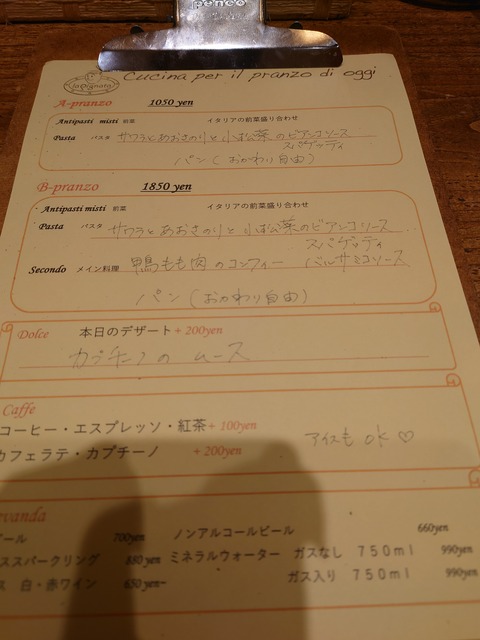 penco
la Pignata
Cucina per il pranzo di oggi
A-pranzo 1050 yen
Antipasti misti 前菜 イタリアの前菜盛り合わせ
Pasta パスタ サワラとあおさのりと小松菜のビアンコソース
スパゲッティ
パン(おかわり自由)
B-pranzo 1850 yen
・Antipasti misti 前菜 イタリアの前菜盛り合わせ
Pasta パスタ サワラとあおさのりと小松菜のビアンコソース
スパゲッティ
Secondo メイン料理 鴨もも肉のコンフィー バルサミコソース
パン(おかわり自由)
Dolce 本日のデザート+ 200yen
カプチーノのムース
Caffe
コーヒー・エスプレッソ・紅茶+ 100yen
アイスも OK ♡
カフェラテ・カプチーノ + 200yen
evanda
ール 700yen ノンアルコールビール 660yen
ススパークリング 880 yen ミネラルウォーター ガスなし 750ml 990yen
ス 白・赤ワイン 650 yen~ ガス入り 750ml 990yen